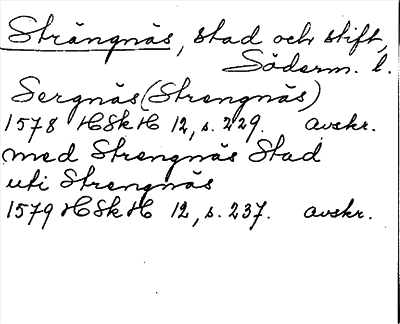 Strängnäs, stad och stift,
Söderm. l.
Sergnäs (Strengnäs)
1578 HSkH 12, s. 229. avskr.
med Strengnäs Stad
uti Strengnäs
1579 HSkH 12, s. 237. avskr.